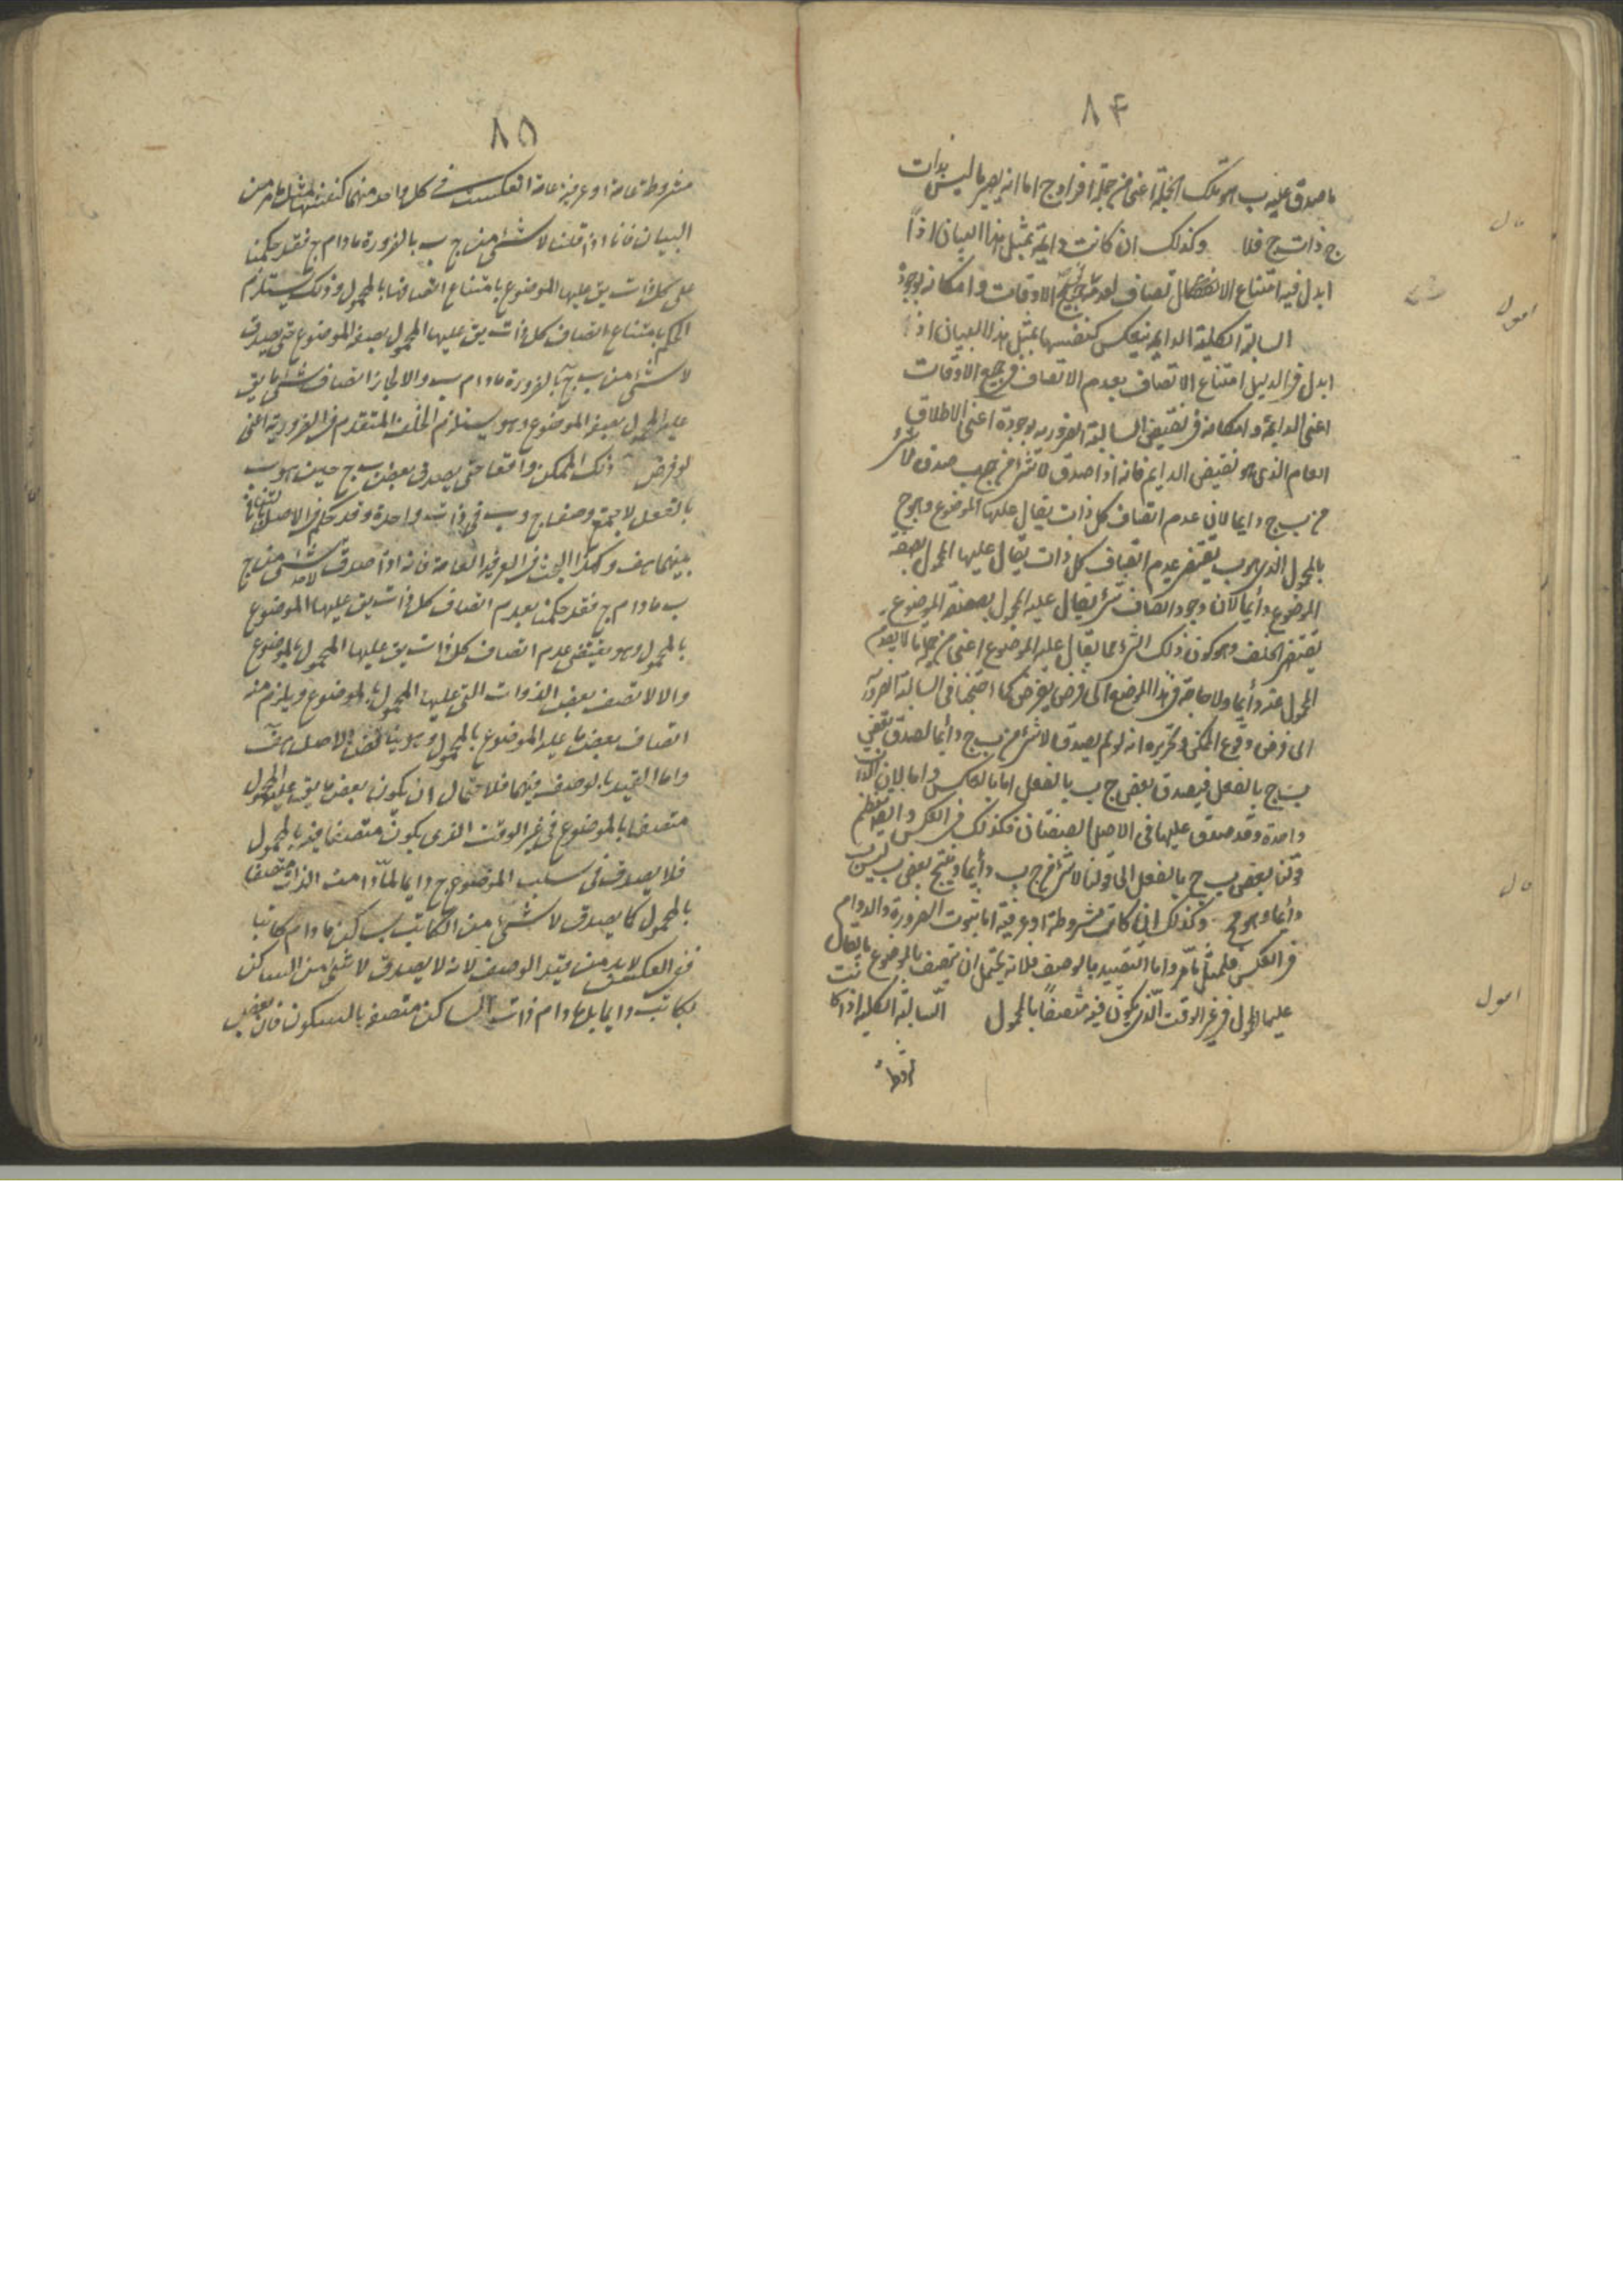 ٨۴
ما صدق عليه ب هو تلك الجملة اعنى من جملة افراد ج اما انه يصير ما ليس بذات
ج ذات ج فلا وكذلك ان كانت دايمة بمثل هذا البيان اذا
قال
ابدل فيه امتناع الاتصاف بعدمه فى جميع الاوقات وامكانه بوجوده
اقول
السالبة الكلية الدايمة ينعكس كنفسها بمثل هذا البيان اذا
ابدل فى الدليل امتناع الاتصاف بعدم الاتصاف فى جميع الاوقات
اعنى الدايمة وامكانه فى نقيض السالبة الضرورية بوجوده اعنى الاطلاق
العام الذى هو نقيض الدايم فانه اذا صدق لا شئ من ج ب صدق لا شئ
من ب ج دايما لان عدم اتصاف كل ذات يقال عليها الموضوع وهو ج
بالمحمول الذى هو ب يقتضى عدم اتصاف كل ذات يقال عليها المحمول بصفة
الموضوع دايما لان وجود اتصاف شئ يقال عليه المحمول بصفة الموضوع
يقتضى الخلف وهو كون ذلك الشئ مما يقال عليه الموضوع اعنى من جملة ما لا يعدم
المحمول عنه دايما ولا حاجة فى هذا الموضع الى فرض يفرض كما احتجنا فى السالبة الضرورية
الى فرض وقوع الممكن وتحريره انه لو لم يصدق لا شئ من ب ج دايما لصدق بعض
ب ج بالفعل فيصدق بعض ج ب بالفعل اما بالعكس واما لان الذات
واحدة وقد صدق عليها فى الاصل الصفتان فكذلك فى العكس وايضا نضم
قولنا بعض ب ج بالفعل الى قولنا لا شئ من ج ب دايما وينتج بعض ب ليس ب
قال
دايما وهو مح وكذلك ان كانت مشروطة او عرفية اما ثبوت الضرورة والدوام
فى العكس فلمثل ما مر واما التقييد بالوصف فلانه يحتمل ان يتصف بالموضوع ما يقال
اقول
عليها المحمول فى غير الوقت الذى يكون فيه متصفا بالمحمول السالبة الكلية اذا كانت
مشروطة
٨٥
مشروطة عامة او عرفية عامة انعكست فى كل واحد منهما كنفسها بمثل ما مر من
البيان فانا اذا قلنا لا شئ من ج ب بالضرورة ما دام ج فقد حكمنا
على كل ذات يق عليها الموضوع بامتناع اتصافها بالمحمول وذلك يستلزم
الحكم بامتناع اتصاف كل ذات يق عليها المحمول بصفة الموضوع حتى يصدق
لا شئ من ب ج بالضرورة ما دام ب والا لجاز اتصاف شئ ما يق
عليه المحمول بصفة الموضوع وهو يستلزم الخلف المتقدم فى الضرورية اعنى
لو فرض ذلك الممكن واقعا حتى يصدق بعض ب ج حين هو ب
بالفعل لاجتمع وصفا ج و ب فى ذات واحدة وقد حكم فى الاصل بتنافى
بينهما هف وكذا البحث فى العرفية العامة فانه اذا صدق لا شئ من ج
ب ما دام ج فقد حكمنا بعدم اتصاف كل ذات يق عليها الموضوع
بالمحمول وهو يقتضى عدم اتصاف كل ذات يق عليها المحمول بالموضوع
والا لاتصف بعض الذوات التى عليها المحمول بالموضوع ويلزم منه
اتصاف بعض ما عليه الموضوع بالمحمول وهو يناقض الاصل هف
واما القيد بالوصف فيهما فلاحتمال ان يكون بعض ما يق عليه المحمول
متصفا بالموضوع فى غير الوقت الذى يكون متصفا فيه بالمحمول
فلا يصدق فى سلب الموضوع ح دايما لما دامت الذات متصفا
بالمحمول كما يصدق لا شئ من الكاتب بساكن ما دام كاتبا
ففى العكس لابد من قيد الوصف لانه لا يصدق لا شئ من الساكن
بكاتب دايما بل ما دام ذات الساكن متصفة بالسكون فان بعض